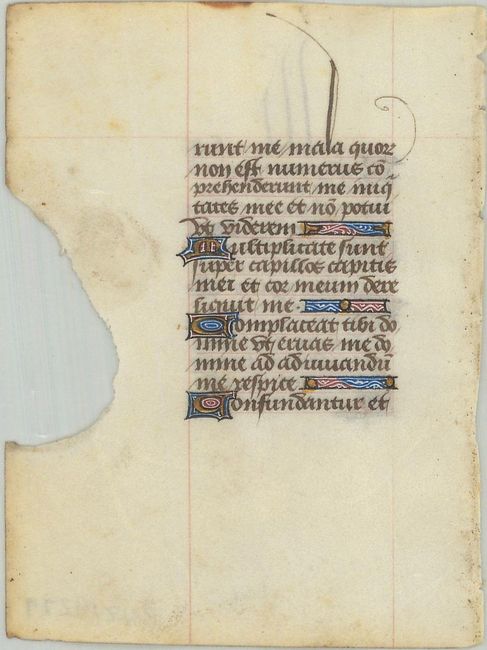 runt me mala quor
non est numerus cō
prehenderunt me iniq̄
tates mee et nō potui
vt viderem
Multiplicate sunt
super capillos capitis
mei et cor meum dere
liquit me
Complaceat tibi do
mine vt eruas me do
mine ad adiuuandū
me respice
Confundantur et